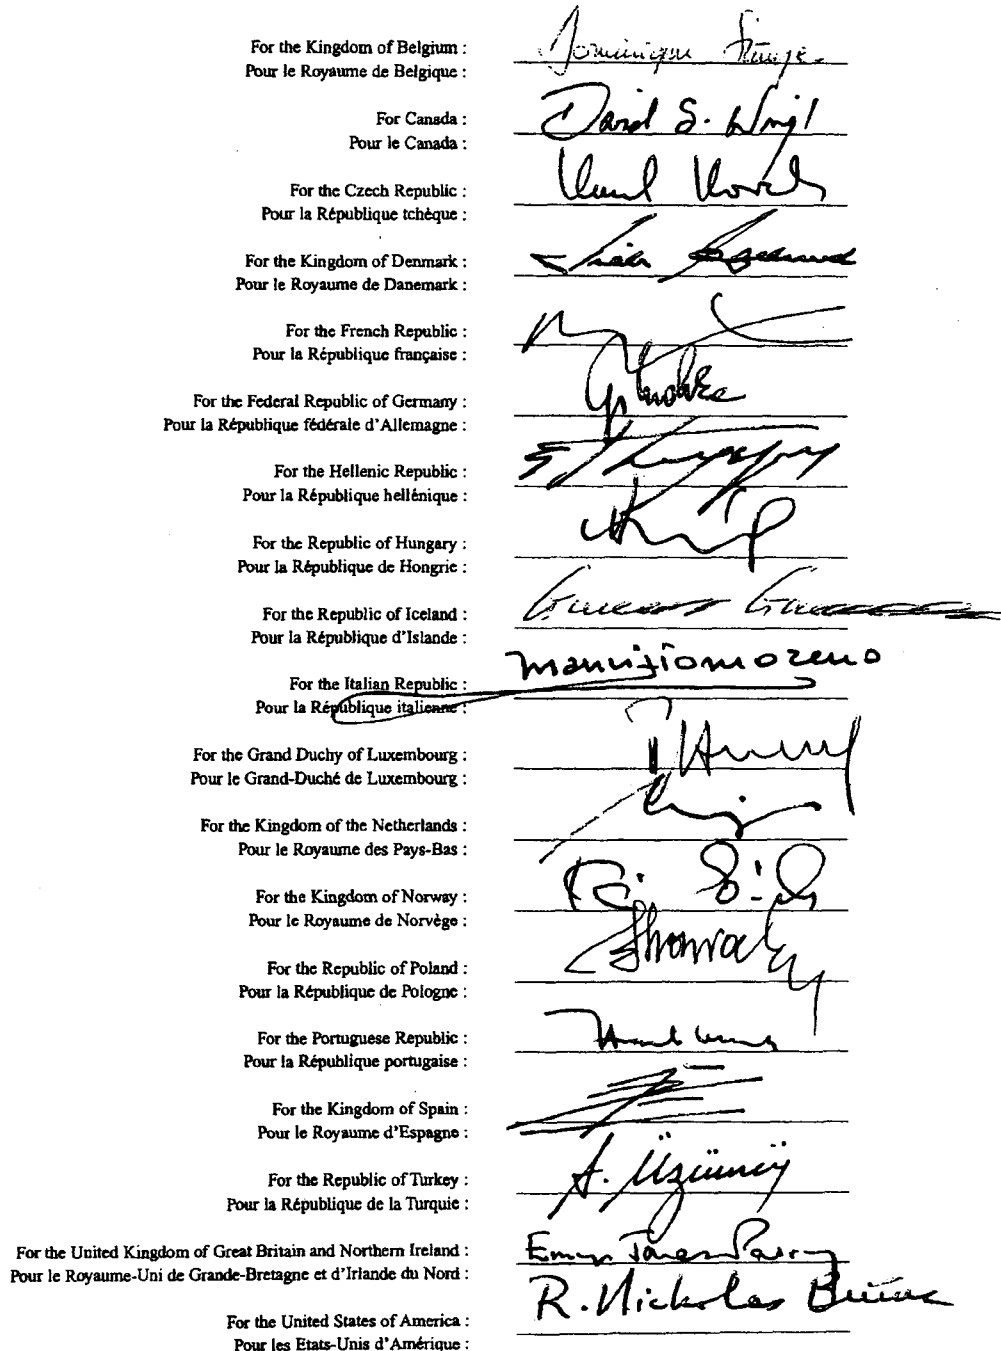 For the Kingdom of Belgium :
Pour le Royaume de Belgique :
Dominique
For Canada :
Pour le Canada :
David S. Wright
For the Czech Republic :
Pour la République tchèque :
Karel Kovanda
For the Kingdom of Denmark :
Pour le Royaume de Danemark :
For the French Republic :
Pour la République française :
For the Federal Republic of Germany :
Pour la République fédérale d'Allemagne :
For the Hellenic Republic :
Pour la République hellénique :
For the Republic of Hungary :
Pour la République de Hongrie :
For the Republic of Iceland :
Pour la République d'Islande :
For the Italian Republic :
Pour la République italienne :
moreno
For the Grand Duchy of Luxembourg :
Pour le Grand-Duché de Luxembourg :
For the Kingdom of the Netherlands :
Pour le Royaume des Pays-Bas :
For the Kingdom of Norway :
Pour le Royaume de Norvège :
For the Republic of Poland :
Pour la République de Pologne :
For the Portuguese Republic :
Pour la République portugaise :
For the Kingdom of Spain :
Pour le Royaume d'Espagne :
For the Republic of Turkey :
Pour la République de la Turquie :
A. Üzümcü
For the United Kingdom of Great Britain and Northern Ireland :
Pour le Royaume-Uni de Grande-Bretagne et d'Irlande du Nord :
Emyr Jones Parry
For the United States of America :
Pour les Etats-Unis d'Amérique :
R. Nicholas Burns